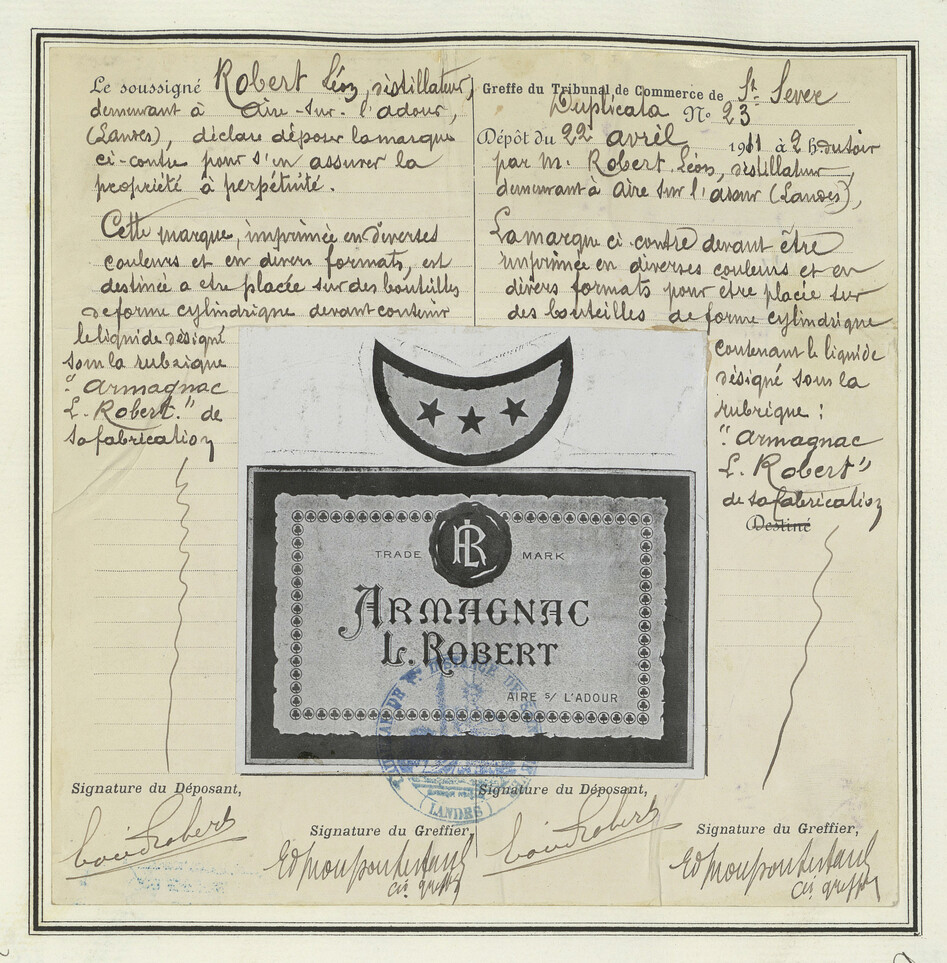 Le soussigné Robert Léon, distillateur,
demeurant à Aire-sur-l'adour,
(Landes), déclare déposer la marque
ci-contre pour s'en assurer la
propriété à perpétuité.
Cette marque, imprimée en diverses
couleurs et en divers formats, est
destinée a etre placée sur des bouteilles
de forme cylindrique devant contenir
le liquide désigné
sous la rubrique
"Armagnac
L. Robert." de
sa fabrication
Greffe du Tribunal de Commerce de St. Sever
Duplicata No 23
Dépôt du 22 avril 1911 à 2 h du soir
par M. Robert Léon, distillateur,
demeurant à Aire sur l'adour (Landes),
La marque ci contre devant être
imprimée en diverses couleurs et en
divers formats pour être placée sur
des bouteilles de forme cylindrique
contenant le liquide
désigné sous la
rubrique :
"Armagnac
L. Robert"
de sa fabrication
Destiné
LR
TRADE MARK
ARMAGNAC
L. ROBERT
AIRE S/ L'ADOUR
(LANDES)
Signature du Déposant,
Robert
Signature du Greffier,
Signature du Déposant,
Robert
Signature du Greffier,